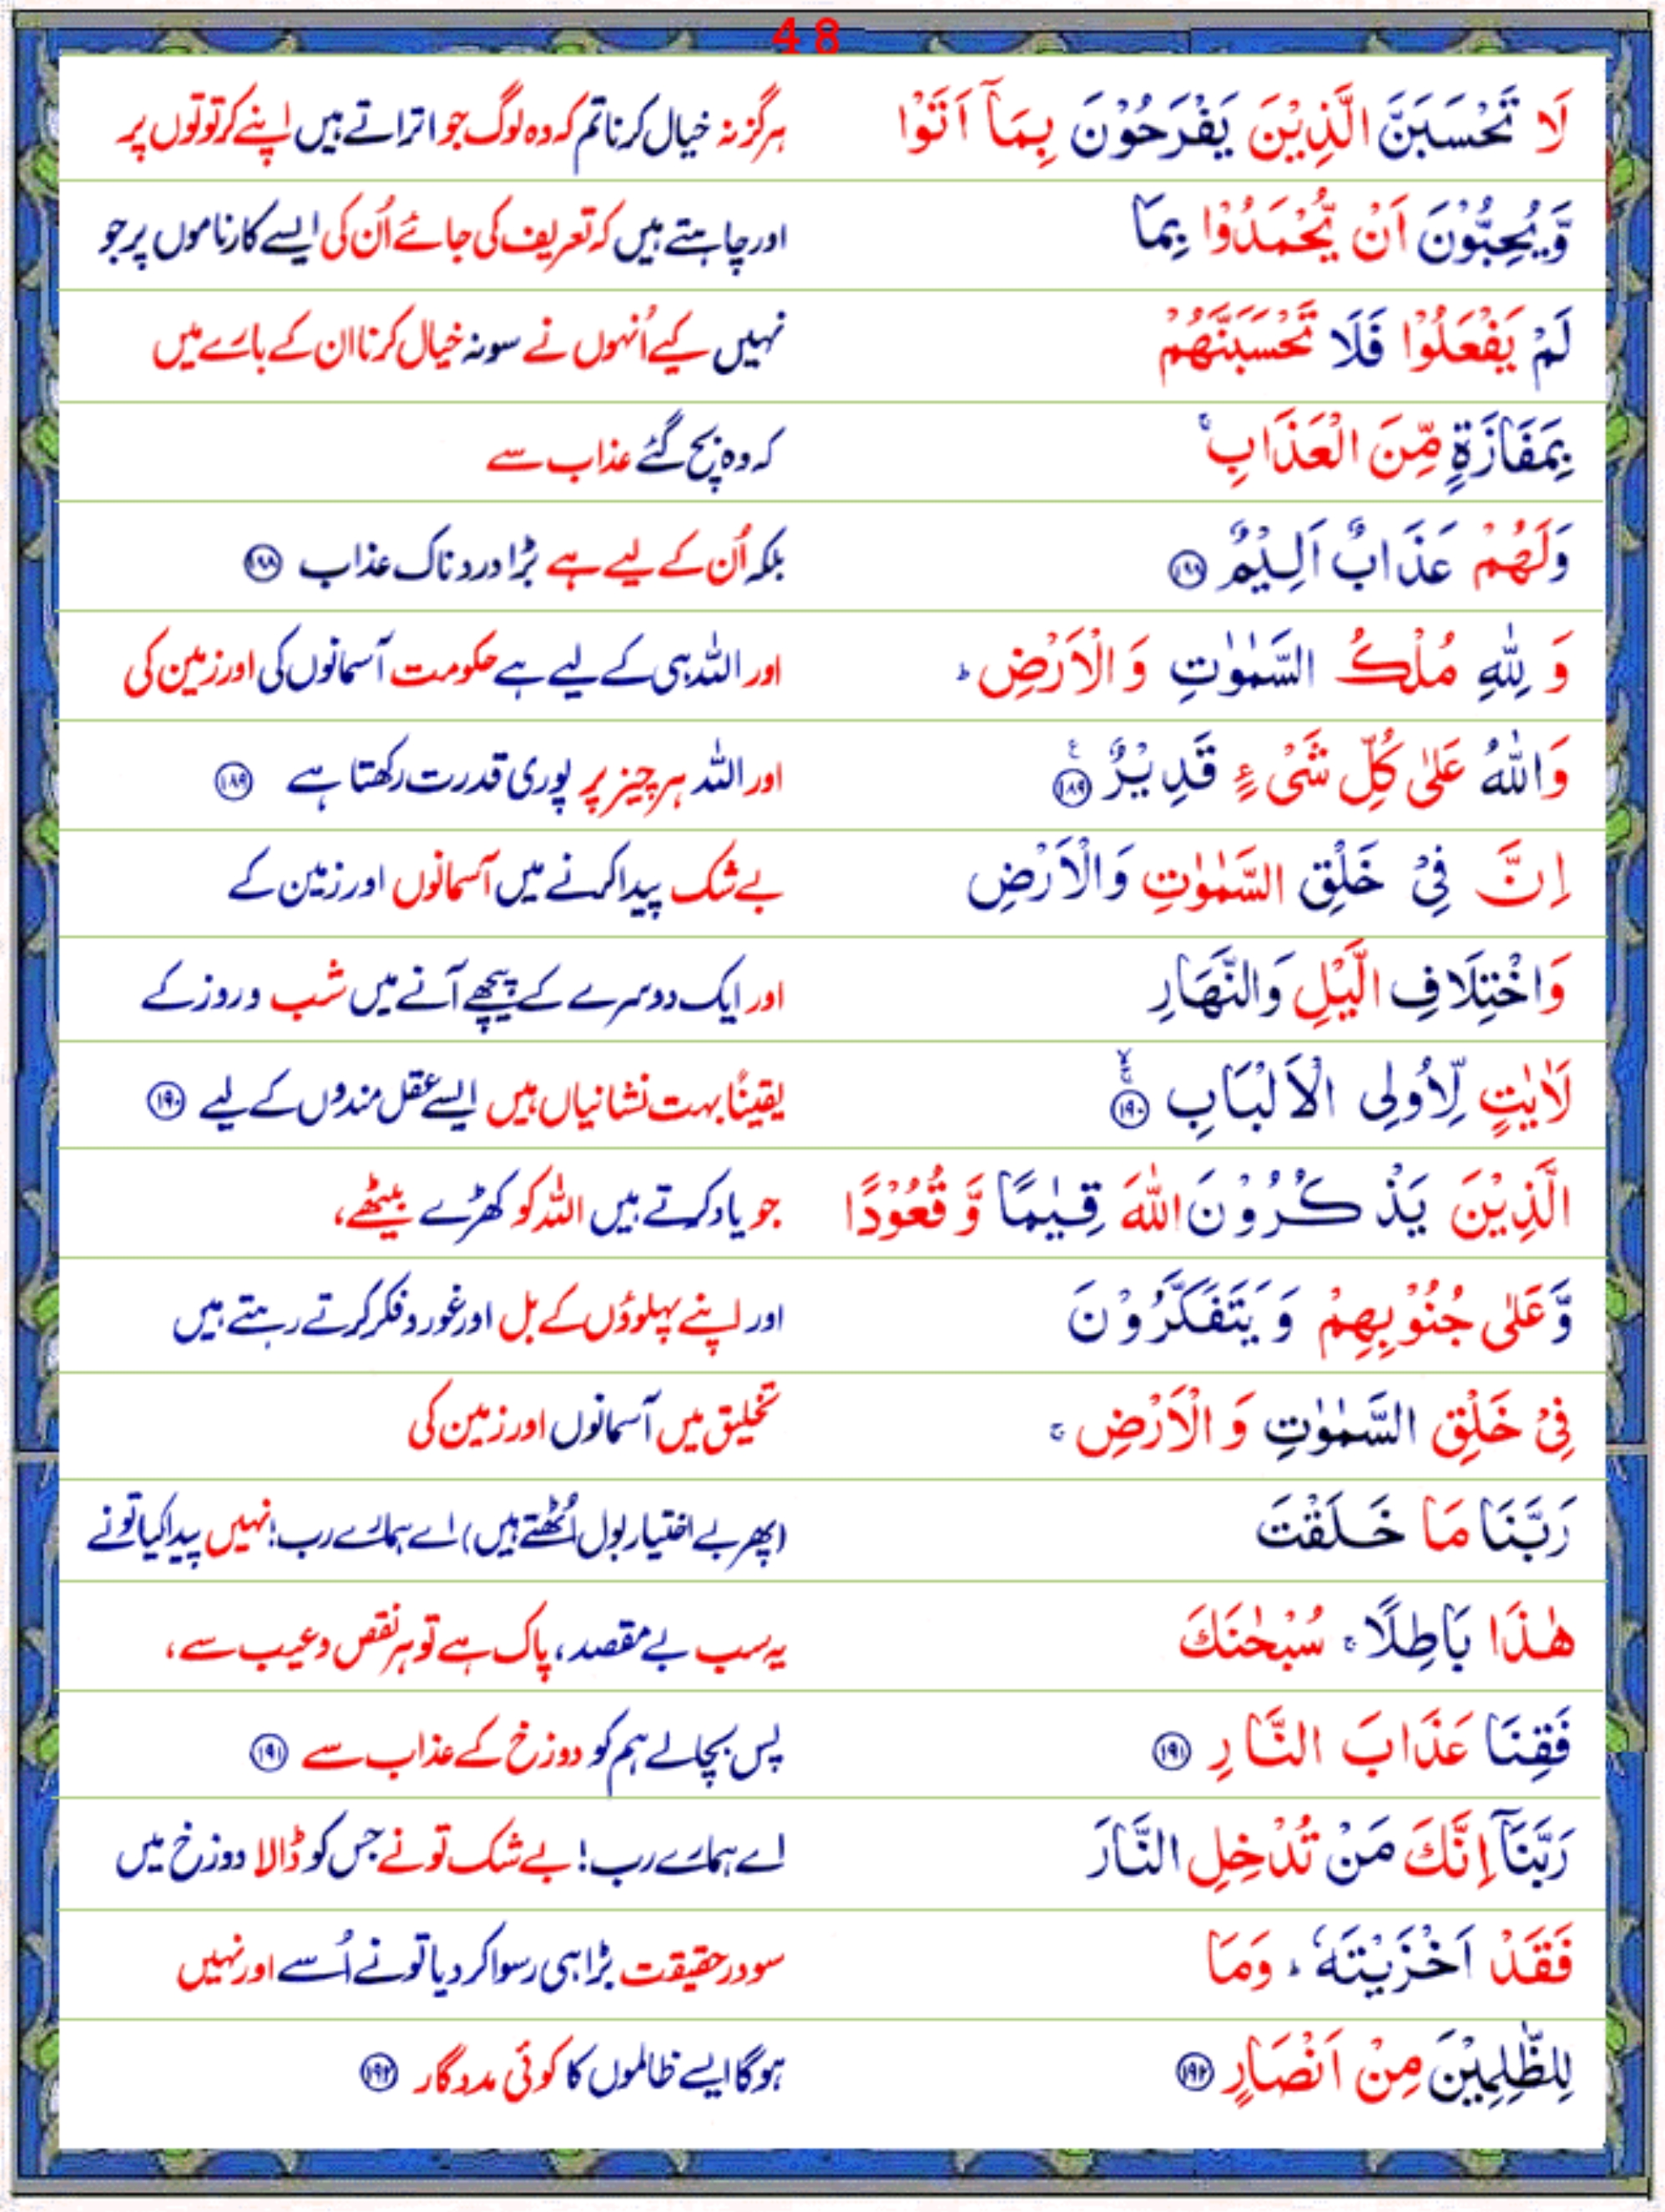 48
لَا تَحْسَبَنَّ الَّذِيْنَ يَفْرَحُوْنَ بِمَآ اَتَوْا ہرگز نہ خیال کرنا تم کہ وہ لوگ جو اتراتے ہیں اپنے کرتوتوں پر
وَّيُحِبُّوْنَ اَنْ يُّحْمَدُوْا بِمَا اور چاہتے ہیں کہ تعریف کی جائے اُن کی ایسے کارناموں پر جو
لَمْ يَفْعَلُوْا فَلَا تَحْسَبَنَّهُمْ نہیں کیے اُنہوں نے سو نہ خیال کرنا ان کے بارے میں
بِمَفَازَةٍ مِّنَ الْعَذَابِ ۚ کہ وہ بچ گئے عذاب سے
وَلَهُمْ عَذَابٌ اَلِيْمٌ ۝۱۸۸ بلکہ اُن کے لیے ہے بڑا دردناک عذاب ۝۱۸۸
وَ لِلّٰهِ مُلْكُ السَّمٰوٰتِ وَ الْاَرْضِ ؕ اور اللہ ہی کے لیے ہے حکومت آسمانوں کی اور زمین کی
وَاللّٰهُ عَلٰى كُلِّ شَىْءٍ قَدِيْرٌ ۝۱۸۹ ع اور اللہ ہر چیز پر پوری قدرت رکھتا ہے ۝۱۸۹
اِنَّ فِىْ خَلْقِ السَّمٰوٰتِ وَالْاَرْضِ بے شک پیدا کرنے میں آسمانوں اور زمین کے
وَاخْتِلَافِ الَّيْلِ وَالنَّهَارِ اور ایک دوسرے کے پیچھے آنے میں شب و روز کے
لَاٰيٰتٍ لِّاُولِى الْاَلْبَابِ ۝۱۹۰ ۚ ۙ یقیناً بہت نشانیاں ہیں ایسے عقل مندوں کے لیے ۝۱۹۰
الَّذِيْنَ يَذْكُرُوْنَ اللّٰهَ قِيٰمًا وَّ قُعُوْدًا جو یاد کرتے ہیں اللہ کو کھڑے بیٹھے،
وَّعَلٰى جُنُوْبِهِمْ وَ يَتَفَكَّرُوْنَ اور اپنے پہلوؤں کے بل اور غور و فکر کرتے رہتے ہیں
فِىْ خَلْقِ السَّمٰوٰتِ وَ الْاَرْضِ ۚ تخلیق میں آسمانوں اور زمین کی
رَبَّنَا مَا خَلَقْتَ (پھر بے اختیار بول اُٹھتے ہیں) اے ہمارے رب! نہیں پیدا کیا تو نے
هٰذَا بَاطِلًا ۚ سُبْحٰنَكَ یہ سب بے مقصد، پاک ہے تو ہر نقص و عیب سے،
فَقِنَا عَذَابَ النَّارِ ۝۱۹۱ پس بچالے ہم کو دوزخ کے عذاب سے ۝۱۹۱
رَبَّنَآ اِنَّكَ مَنْ تُدْخِلِ النَّارَ اے ہمارے رب! بے شک تو نے جس کو ڈالا دوزخ میں
فَقَدْ اَخْزَيْتَهٗ ؕ وَمَا سو درحقیقت بڑا ہی رسوا کر دیا تو نے اُسے اور نہیں
لِلظّٰلِمِيْنَ مِنْ اَنْصَارٍ ۝۱۹۲ ہوگا ایسے ظالموں کا کوئی مددگار ۝۱۹۲